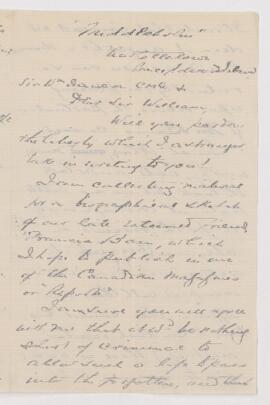 near Charlottetown
Prince Edward Island
Sir Wm Dawson CMG &
Dear Sir William,
Will you pardon
the liberty which I a stranger
take in writing to you!
I am collecting material
for a biographical sketch
of our late esteemed friend,
Francis Bain, which
I hope to publish in one
of the Canadian Magazines
or Reports.
I am sure you will agree
with me that it wd. be nothing
short of criminal to
allow such a life to pass
into the forgotten, and thus